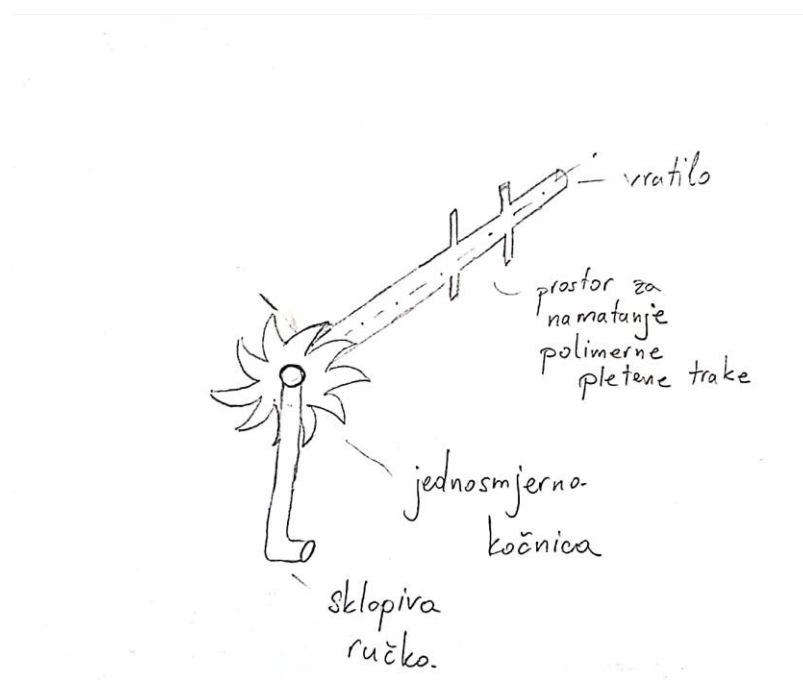 vratilo
prostor za
namatanje
polimerne
pletene trake
jednosmjerna
kočnica
sklopiva
ručka